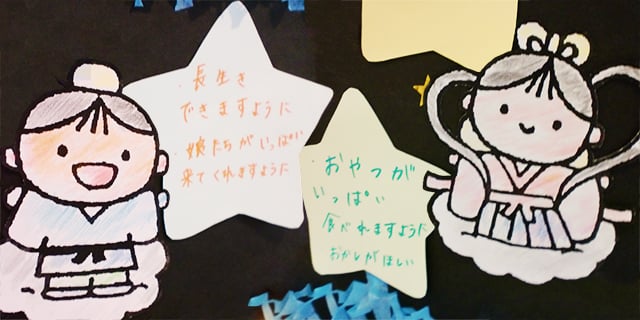 ・長生き
できますように
・娘たちがいっぱい
来てくれますように
・おやつが
いっぱい
食べれますように
おかしがほしい